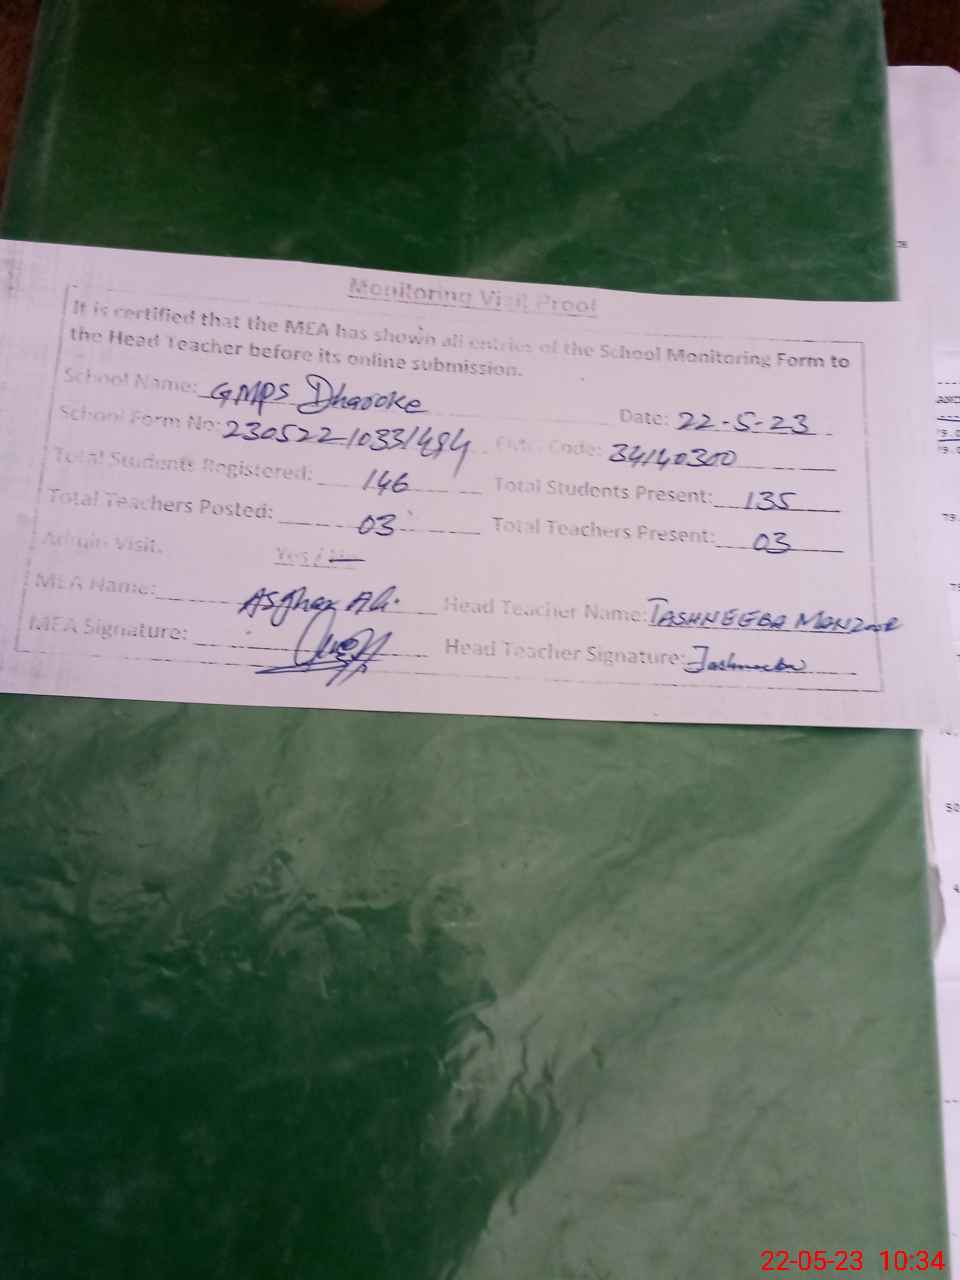 Monitoring Visit Proof
It is certified that the MEA has shown all entries of the School Monitoring Form to
the Head Teacher before its online submission.
School Name: GMPS Dharoke Date: 22-5-23
School Form No: Code: 34140300
Total Students Registered: 146 Total Students Present: 135
Total Teachers Posted: 03 Total Teachers Present: 03
Admin Visit: Yes / No
MEA Name: Asghar Ali. Head Teacher Name: TASHNEEBA MANZOOR
MEA Signature: Head Teacher Signature: Tashneeba
22-05-23 10:34